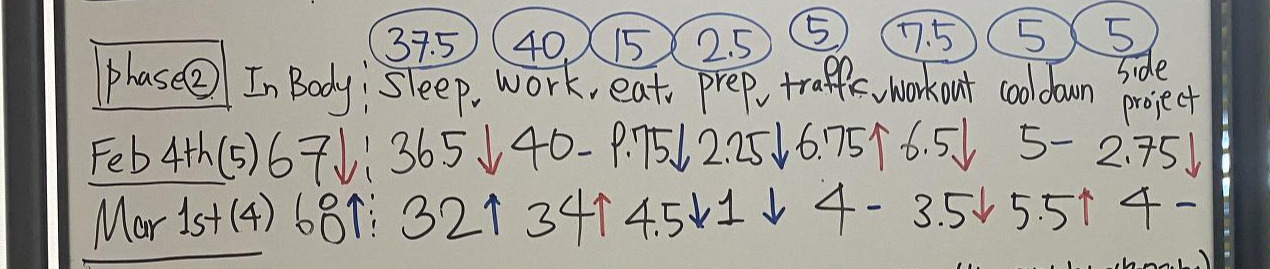 37.5 40 15 2.5 5 7.5 5 5
phase② In Body ¦ Sleep, work, eat, prep, traffic, workout cooldown side project
Feb 4th (5) 67↓ ¦ 36.5↓ 40- 9.75↓ 2.25↓ 6.75↑ 6.5↓ 5- 2.75↓
Mar 1st (4) 68↑ ¦ 32↑ 34↑ 4.5↓ 1↓ 4- 3.5↓ 5.5↑ 4-